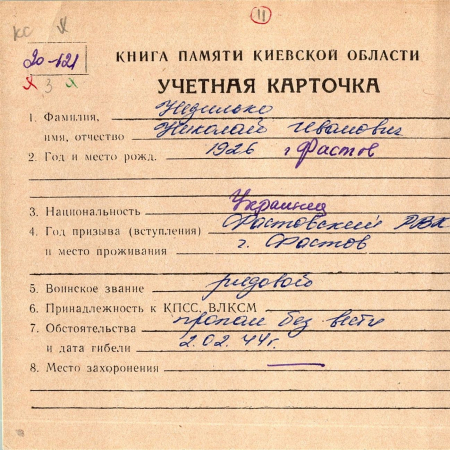 11
КС
20-121
3
КНИГА ПАМЯТИ КИЕВСКОЙ ОБЛАСТИ
УЧЕТНАЯ КАРТОЧКА
1. Фамилия, Недилько
имя, отчество Николай Иванович
2. Год и место рожд. 1926 г Фастов
3. Национальность Украинец
4. Год призыва (вступления) Фастовский РВК
и место проживания г. Фастов
5. Воинское звание рядовой
6. Принадлежность к КПСС, ВЛКСМ
7. Обстоятельства пропал без вести
и дата гибели 2.02.44г.
8. Место захоронения